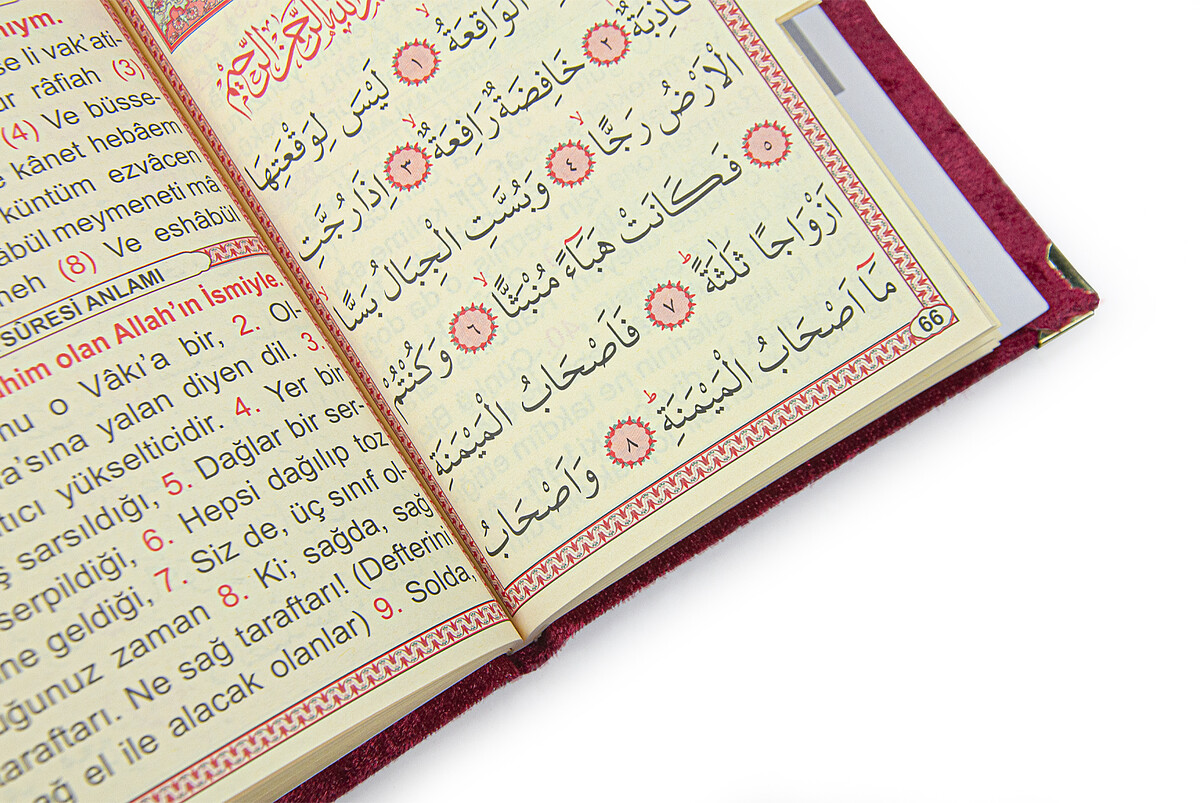 se li vak'ati-
râfiah (3)
(4) Ve büsse-
kânet hebâem
küntüm ezvâcen
meymeneti mâ
(8) Ve eshâbül
SÛRESİ ANLAMI
olan Allah'ın İsmiyle.
o Vâkı'a bir, 2. Ol-
yalan diyen dil. 3.
yükselticidir. 4. Yer bir
sarsıldığı, 5. Dağlar bir ser-
serpildiği, 6. Hepsi dağılıp toz
geldiği, 7. Siz de, üç sınıf ol-
zaman 8. Ki; sağda, sağ
taraftarı. Ne sağ taraftarı! (Defterini
el ile alacak olanlar) 9. Solda,
الْوَاقِعَةُ ﴿١﴾ لَيْسَ لِوَقْعَتِهَا
كَاذِبَةٌ ﴿٢﴾ خَافِضَةٌ رَافِعَةٌ ﴿٣﴾ اِذَا رُجَّتِ
الْاَرْضُ رَجًّا ﴿٤﴾ وَبُسَّتِ الْجِبَالُ بَسًّا
﴿٥﴾ فَكَانَتْ هَبَٓاءً مُنْبَثًّا ﴿٦﴾ وَكُنْتُمْ
اَزْوَاجًا ثَلٰثَةً ﴿٧﴾ فَاَصْحَابُ الْمَيْمَنَةِ
مَٓا اَصْحَابُ الْمَيْمَنَةِ ﴿٨﴾ وَاَصْحَابُ
66